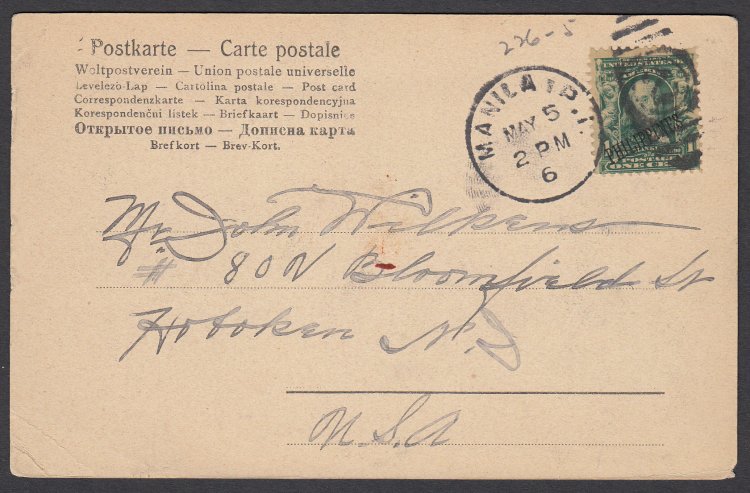 226-5
Postkarte — Carte postale
Weltpostverein — Union postale universelle
Levelező-Lap — Cartolina postale — Post card
Correspondenzkarte — Karta korespondencyjna
Korespondenční listek — Briefkaart — Dopisnice
Открытое письмо — Дописна карта
Brefkort — Brev-Kort.
MANILA P.I.
MAY 5
2 PM
6
PHILIPPINES
POSTAGE
ONE CE
1
Mr. John Wilkens
# 802 Bloomfield St
Hoboken N.J
U.S.A